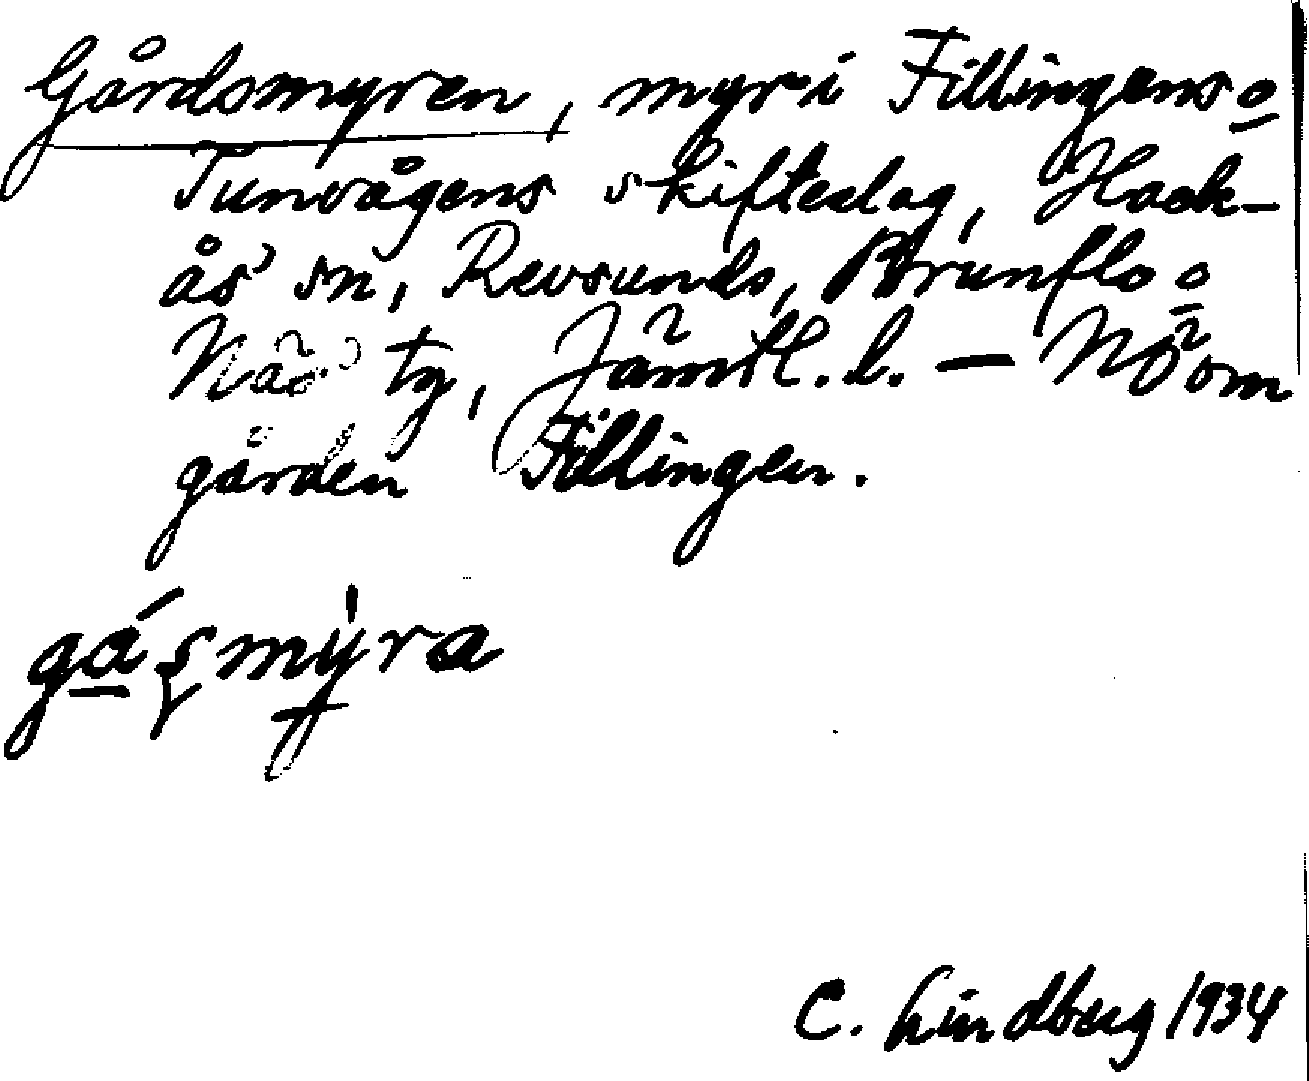 Gårdsmyren, myr i Fillingens o
Tunvågens skifteslag, Hack-
ås sn, Revsunds, Brunflo o
Näs tg, Jämtl. l. – NÖ om
gården Fillingen.
C. Lindberg 1934